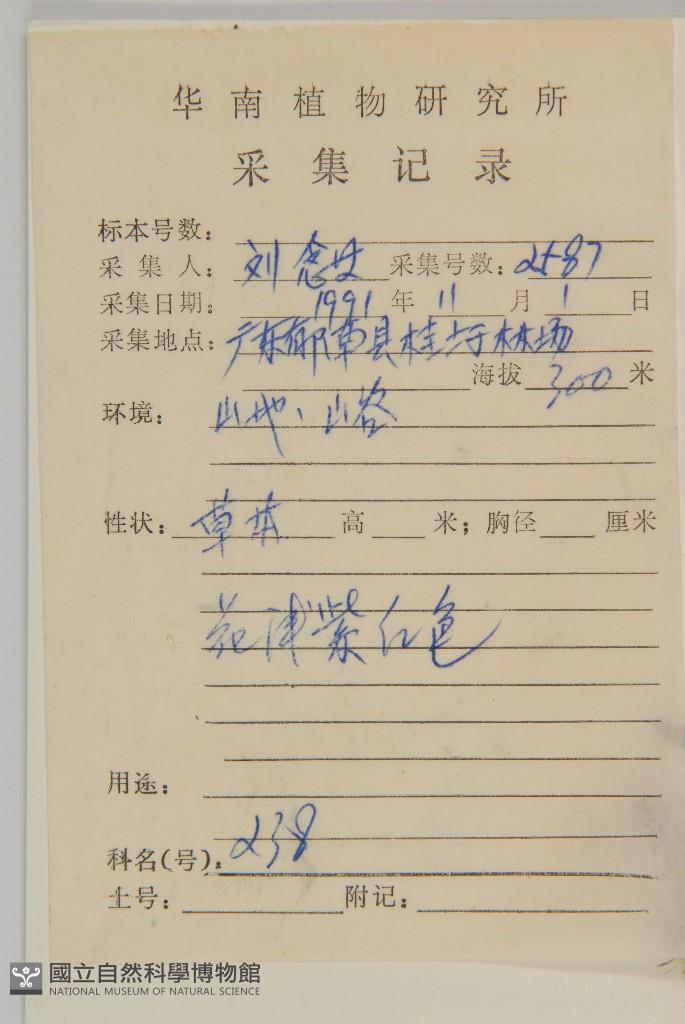 华南植物研究所
采集记录
标本号数：
采集人：刘念 采集号数：2587
采集日期：1991年11月1日
采集地点：广东郁南县桂圩林场
海拔300米
环境：山地、山谷
性状：草本 高 米；胸径 厘米
花 紫红色
用途：
科名(号)：238
土号： 附记：
國立自然科學博物館
NATIONAL MUSEUM OF NATURAL SCIENCE